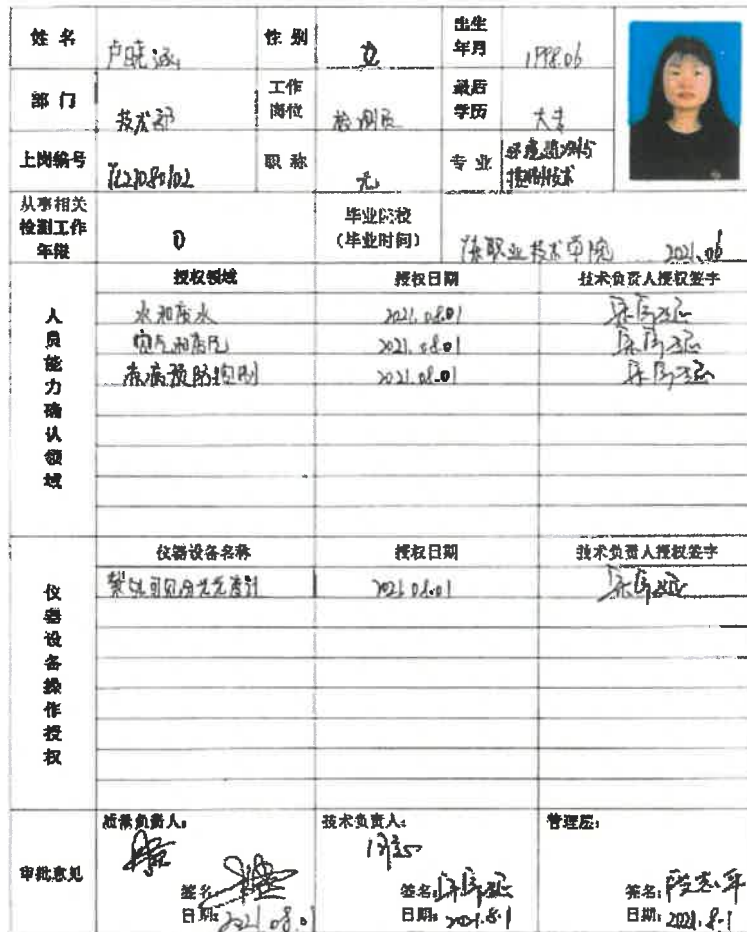 姓名 卢晓涵 性别 女 出生年月 1998.06
部门 技术部 工作岗位 检测员 最后学历 大专
上岗编号 职称 无 专业 环境监测与控制技术
从事相关检测工作年限 0 毕业院校(毕业时间) 职业技术学院 2021.06
人员能力确认领域
授权领域 授权日期 技术负责人授权签字
水和废水 2021.08.01
空气和废气 2021.08.01
疾病预防控制 2021.08.01
仪器设备操作授权
仪器设备名称 授权日期 技术负责人授权签字
紫外可见分光光度计 2021.08.01
审批意见
质量负责人: 技术负责人: 管理层:
同意
签名: 签名: 签名:
日期: 2021.08.01 日期: 2021.8.1 日期: 2021.8.1